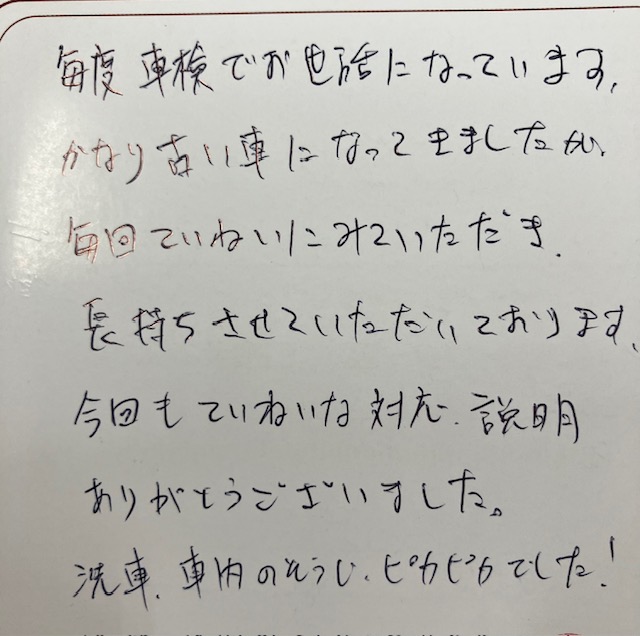 毎度車検でお世話になっています、
かなり古い車になってきましたが、
毎回ていねいにみていただき、
長持ちさせていただいております、
今回もていねいな対応、説明
ありがとうございました。
洗車、車内のそうじ、ピカピカでした!